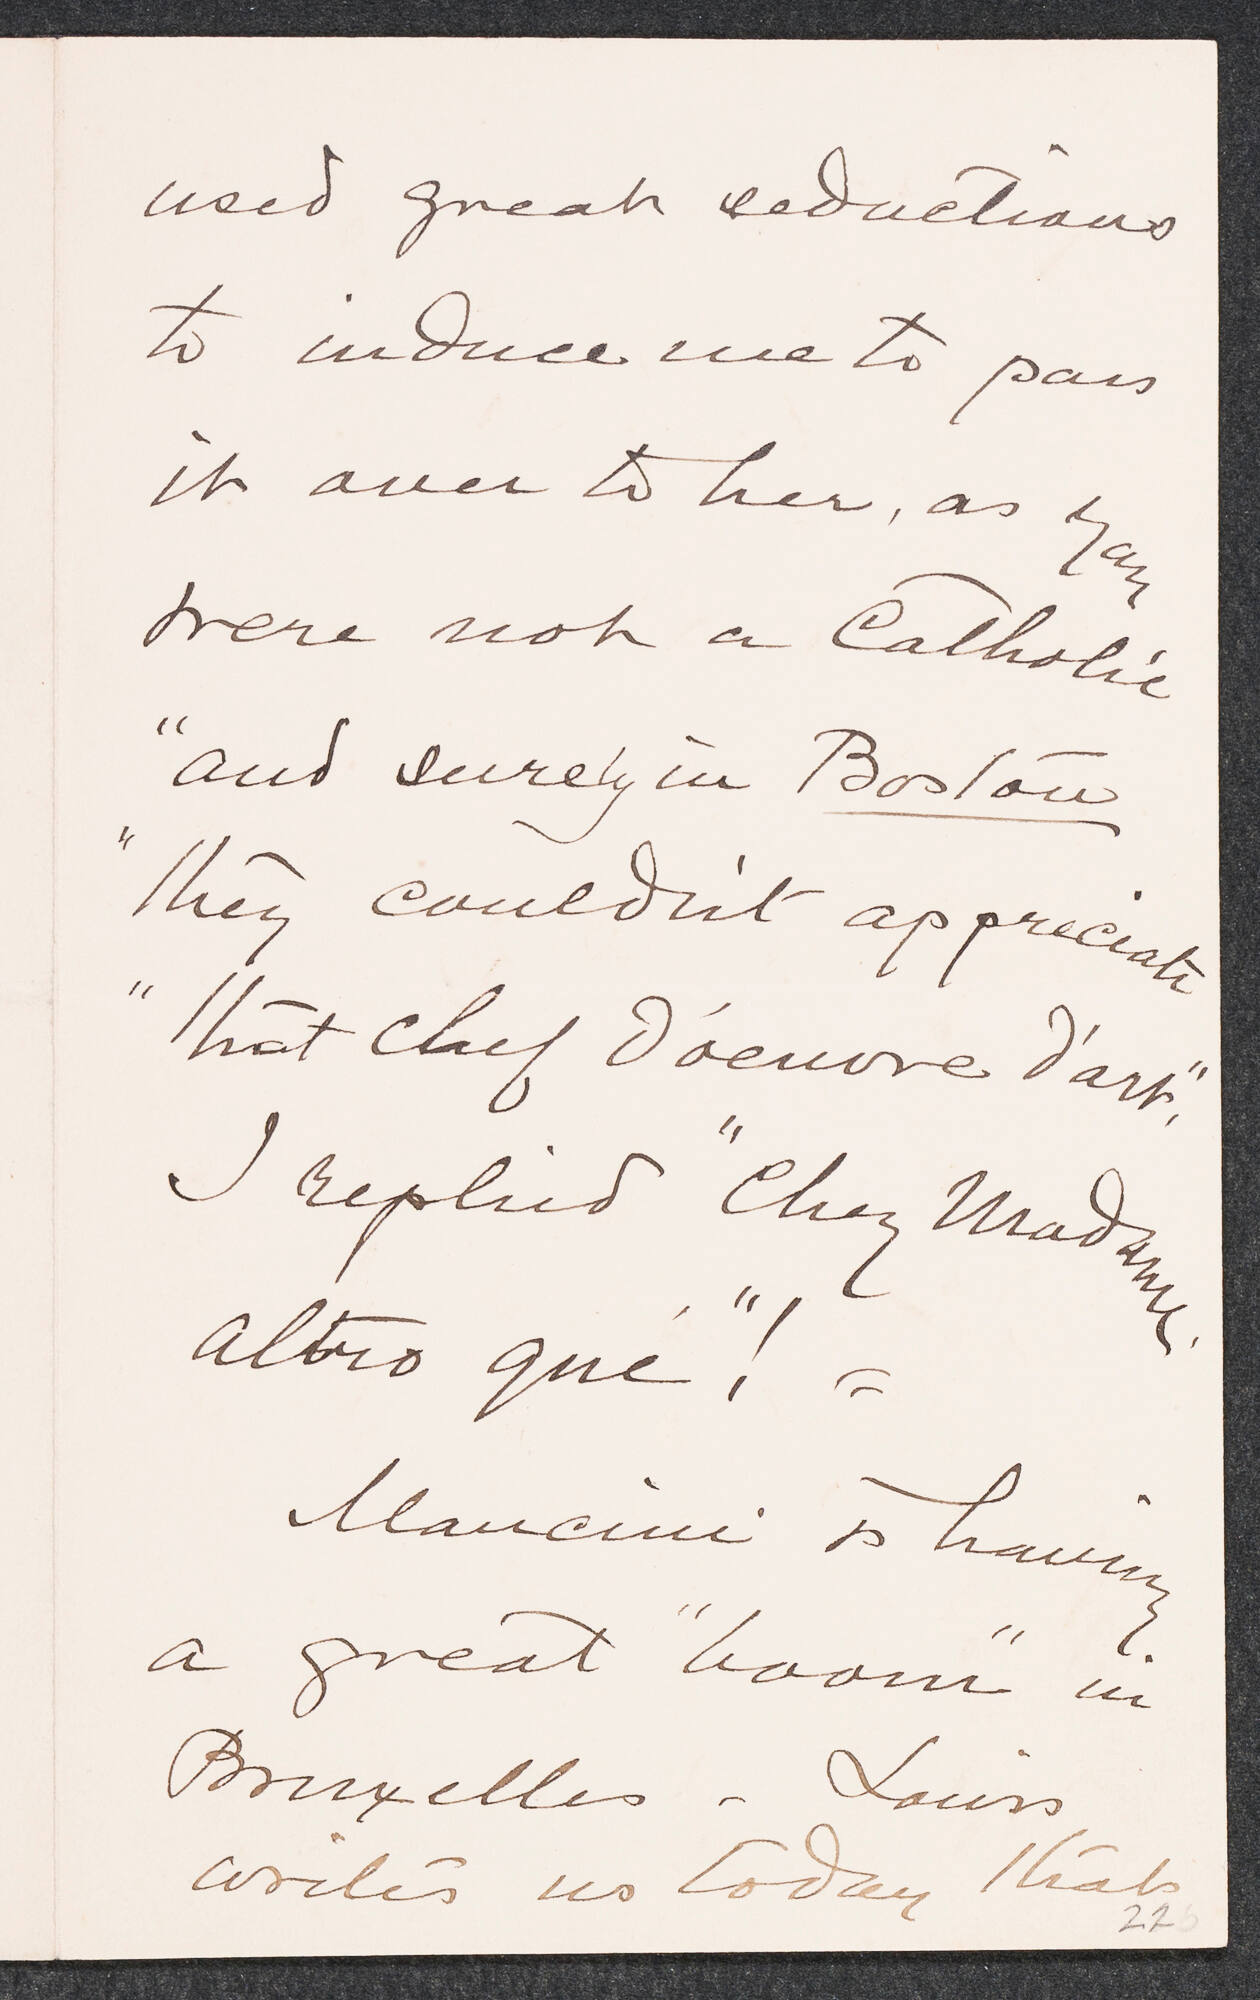 used great seductions
to induce me to pass
it over to her, as you
were not a Catholic
"and surely in Boston
"they couldn't appreciate
"that chef d'oeuvre d'art",
I replied "Chez Madame
altro qué"! =
Mancini is having
a great "boom" in
Bruxelles - Louis
writes us today that
22